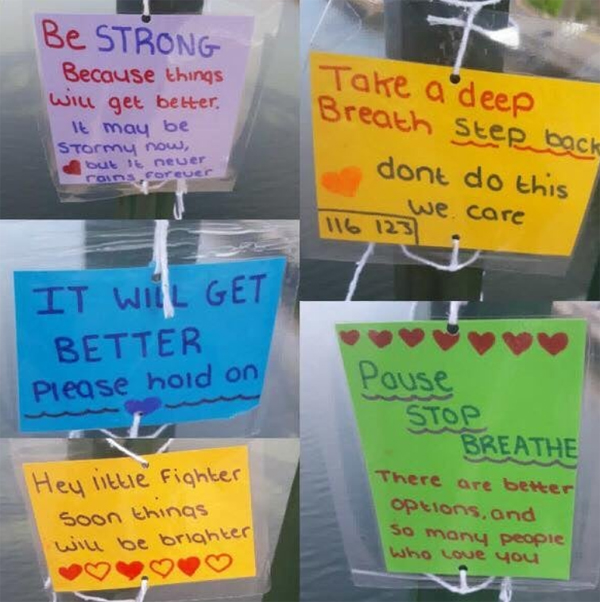 Be STRONG
Because things
will get better.
It may be
stormy now,
but it never
rains forever
Take a deep
Breath Step back
dont do this
we care
116 123
IT WILL GET
BETTER
Please hold on
Pause
STOP
BREATHE
There are better
options, and
so many people
who love you
Hey little Fighter
soon things
will be brighter